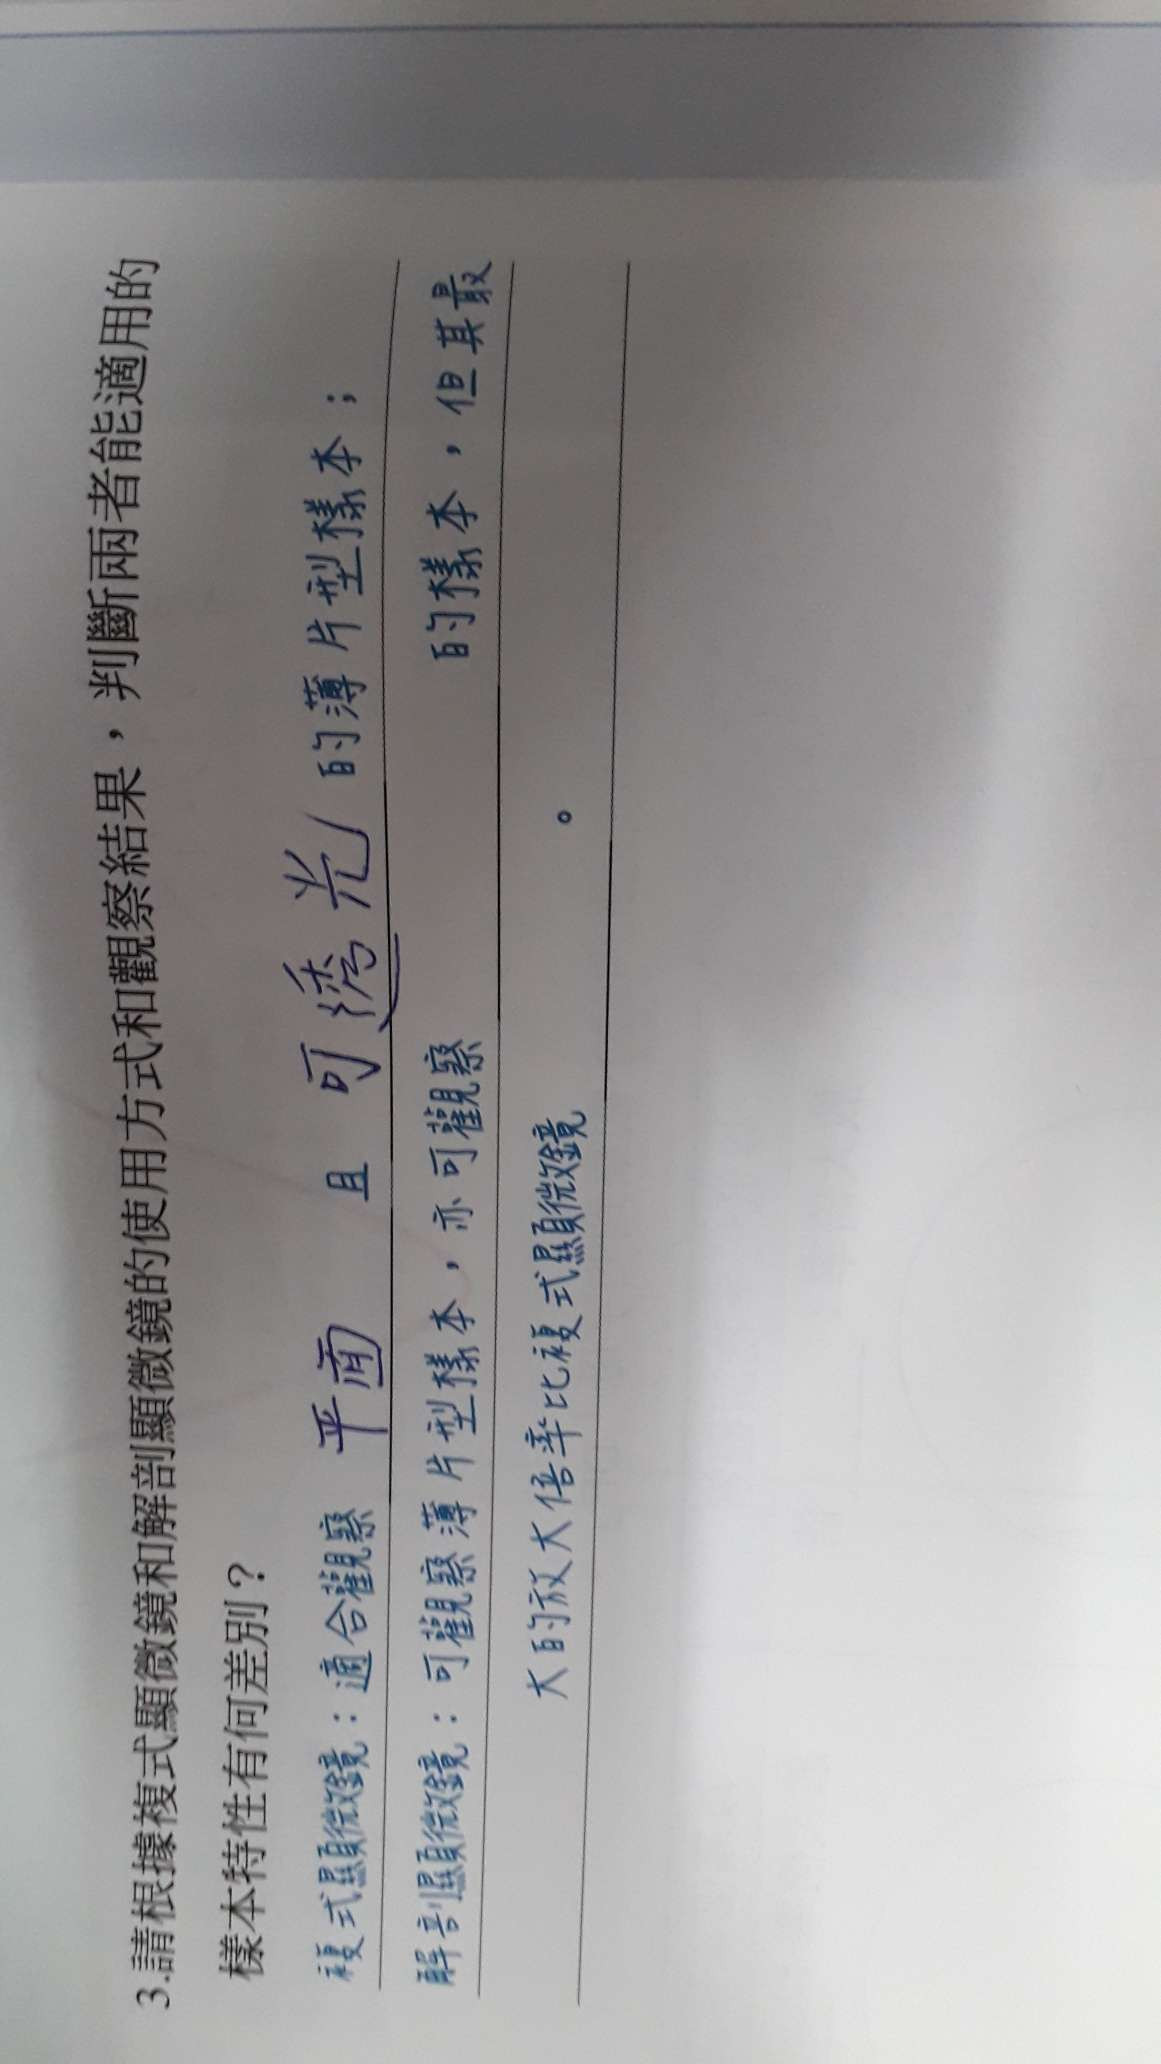 3.請根據複式顯微鏡和解剖顯微鏡的使用方式和觀察結果，判斷兩者能適用的
樣本特性有何差別？
複式顯微鏡：適合觀察 平面 且 可透光 的薄片型樣本；
解剖顯微鏡：可觀察薄片型樣本，亦可觀察 的樣本，但其最
大的放大倍率比複式顯微鏡 。